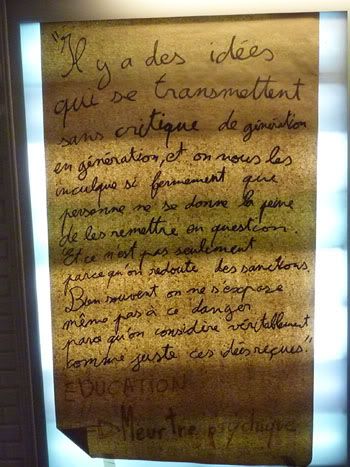 "Il y a des idées
qui se transmettent
sans critique de génération
en génération, et on nous les
inculque si fermement que
personne ne se donne la peine
de les remettre en question.
Et ce n'est pas seulement
parce qu'on redoute des sanctions.
Bien souvent on ne s'expose
même pas à ce danger
parce qu'on considère véritablement
comme juste ces idées reçues."
EDUCATION
=> Meurtre psychique